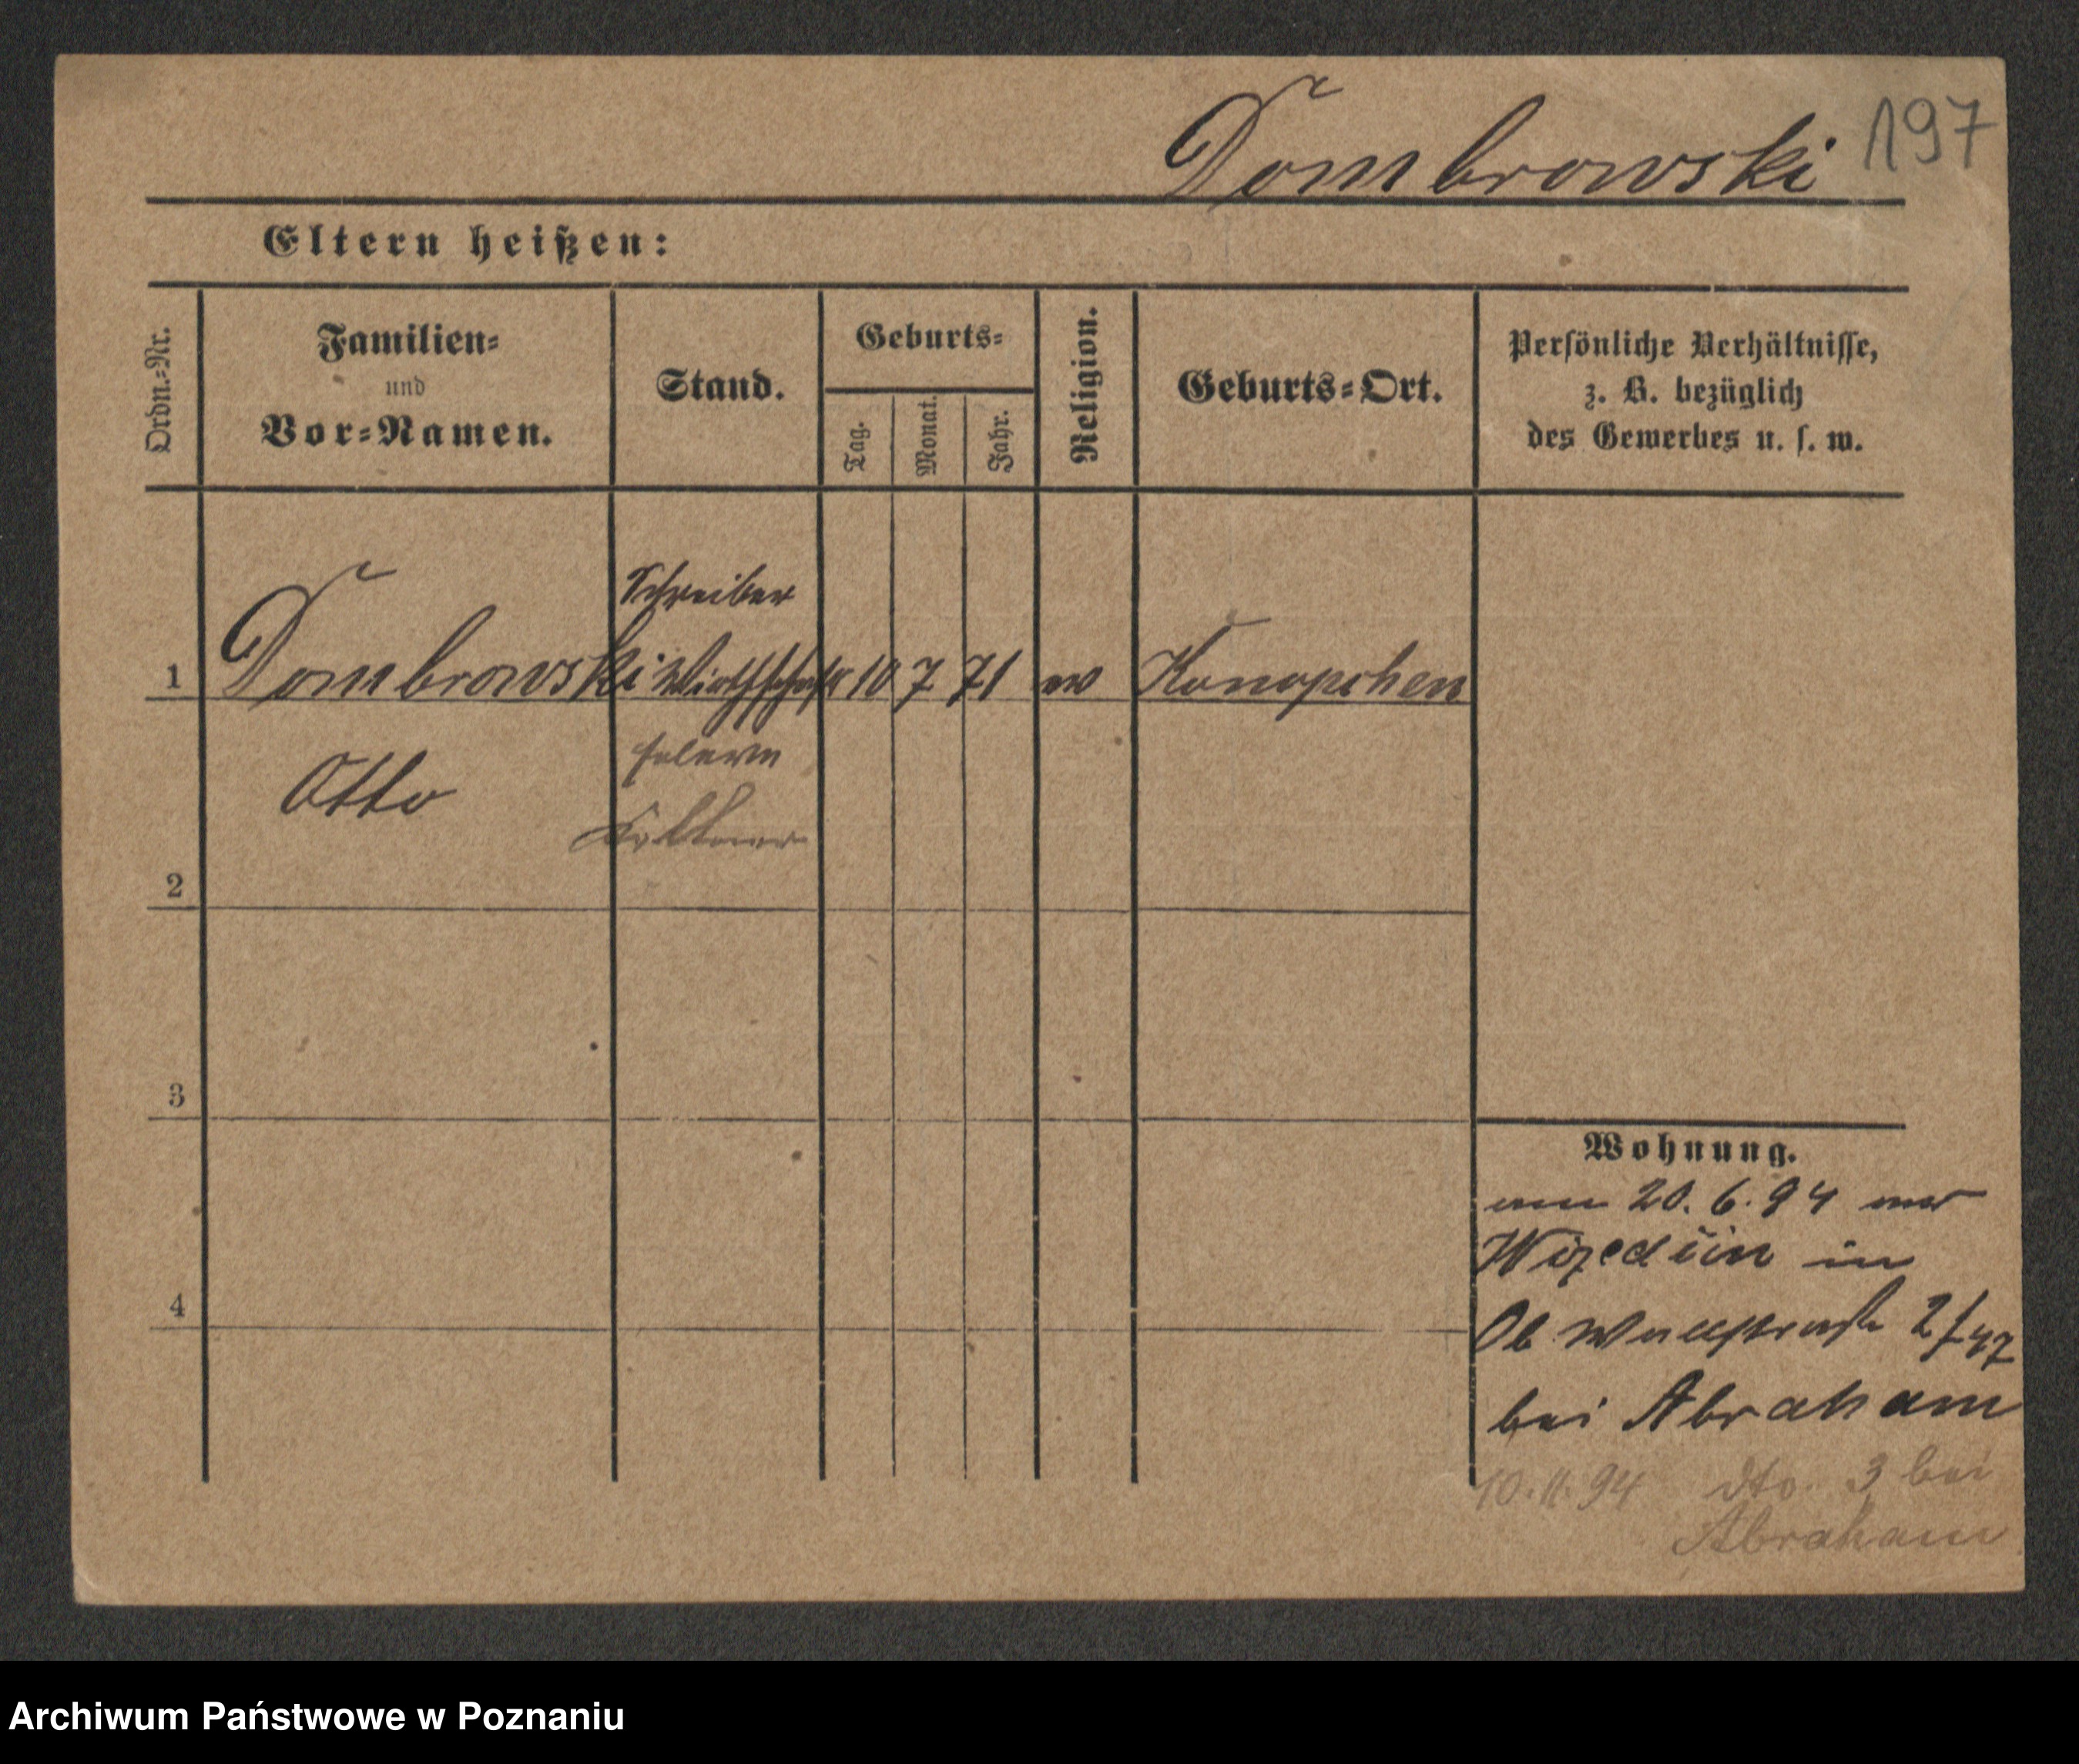 Dombrowski 197
Eltern heißen:
Ordn.-Nr.
Familien-
und
Vor-Namen.
Stand.
Geburts-
Tag.
Monat.
Jahr.
Religion.
Geburts-Ort.
Persönliche Verhältnisse,
z. B. bezüglich
des Gewerbes u. s. w.
Schreiber
1 Dombrowski 10 7 71 ev Konopchen
Otto
Kellner
2
3
4
Wohnung.
20. 6. 94
in
Ob Wallstraße 2/
bei Abraham
10. 11. 94 dto. 3 bei
Abraham
Archiwum Państwowe w Poznaniu